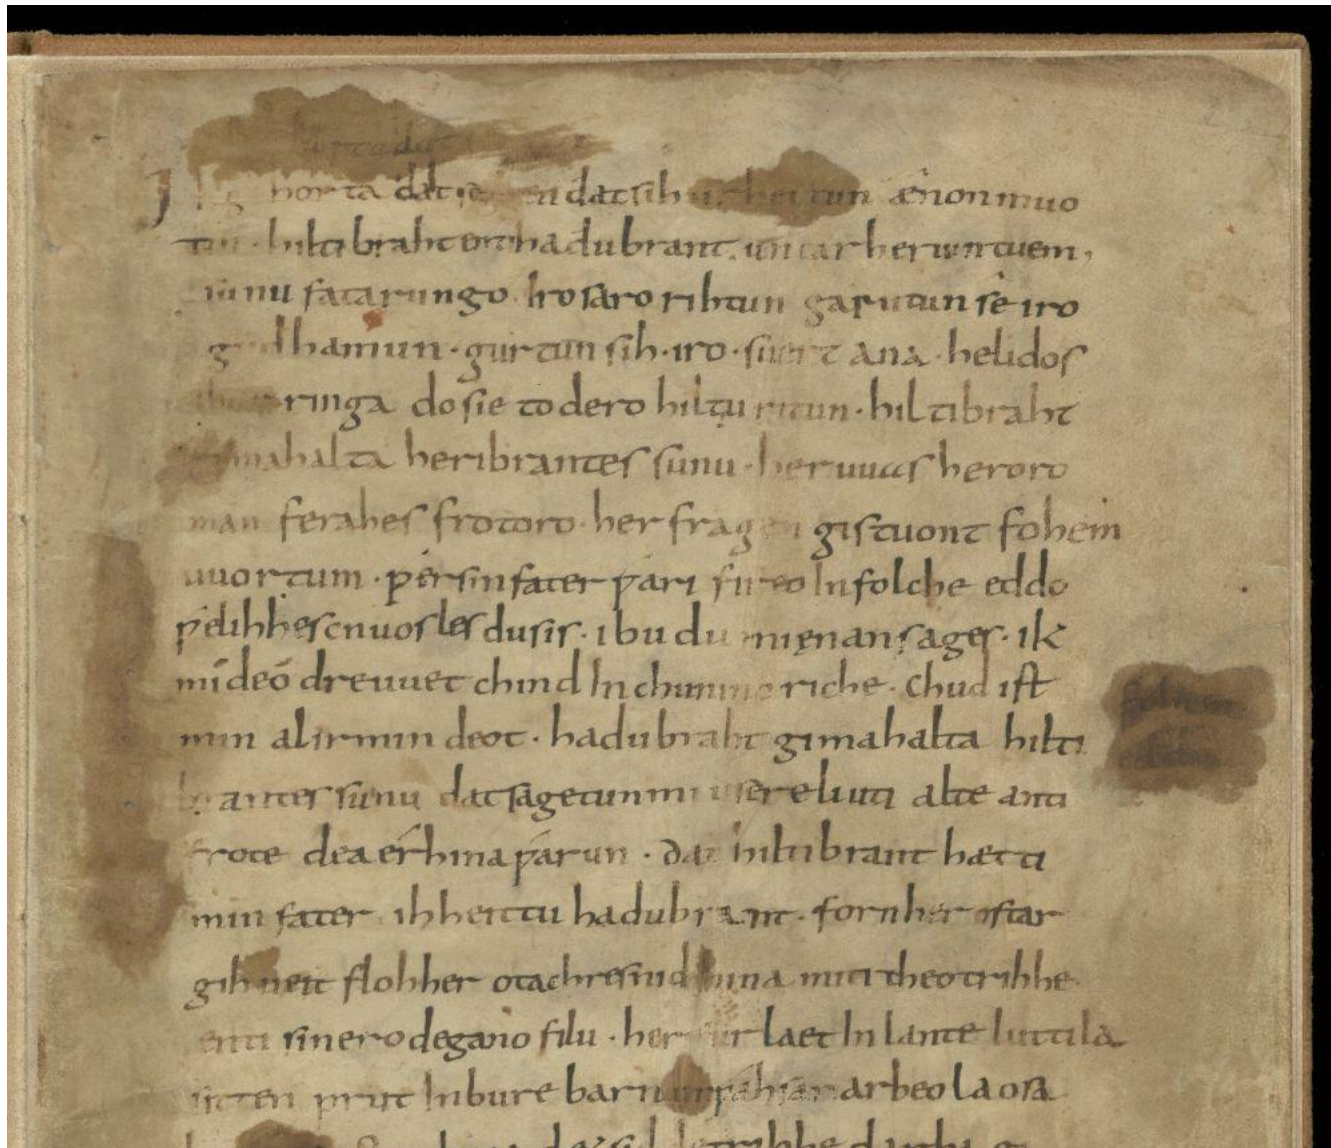 Ik gihorta dat seggen dat sih urhettun ænon muo
tin · hiltibraht enti hadubrant · untar heriun tuem,
sunu fatarungo iro saro rihtun garutun sê iro
gudhamun · gurtun sih · iro · suert ana · helidos
ringa do sie to dero hiltu ritun · hiltibraht
gimahalta heribrantes sunu · her uuas heroro
man ferahes frotoro · her fragen gistuont fohem
uuortum · ƿer sin fater ƿari fireo In folche eddo
ƿelihhes cnuosles du sis · ibu du mi ęnan sages · ik
mi deo dre uuet chind In chuninc riche · chud ist
min al irmin deot · hadubraht gimahalta hilti
brantes sunu dat sagetun mi usere liuti alte anti
frote dea érhina ƿarun · dat hiltibrant hætti
min fater · ih heittu hadubrant · forn her ostar
gihueit floh her otachres nid hina miti theotrihhe
enti sinero degano filu · her furlaet In lante luttila
sitten prut In bure barn unƿahsan arbeo laosa